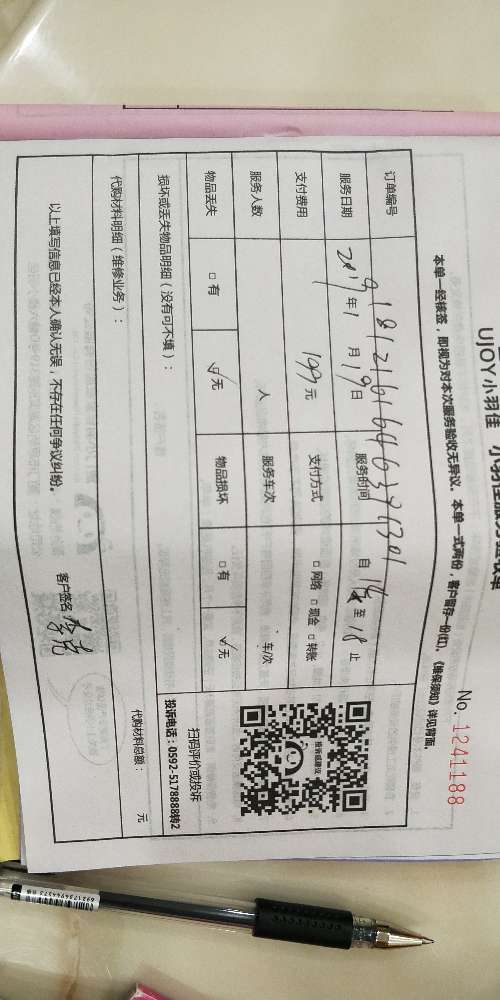 UJOY小羽佳 小羽佳服务验收单
No. 1241188
本单一经核签，即视为对本次服务验收无异议。本单一式两份，客户留存一份(红)。《维保须知》详见背面。
订单编号
服务日期 2019年1月19日 服务时间 自 14 至 18 止
支付费用 199元 支付方式 □ 网络 □ 现金 □ 转账
服务人数 人 服务车次 车/次
物品丢失 □ 有 ☑ 无 物品损坏 □ 有 ☑ 无
扫码评价或投诉
投诉电话：0592-5178888转2
损坏或丢失物品明细（没有可不填）：
代购材料明细（维修业务）： 代购材料总额： 元
以上填写信息已经本人确认无误，不存在任何争议纠纷。 客户签名